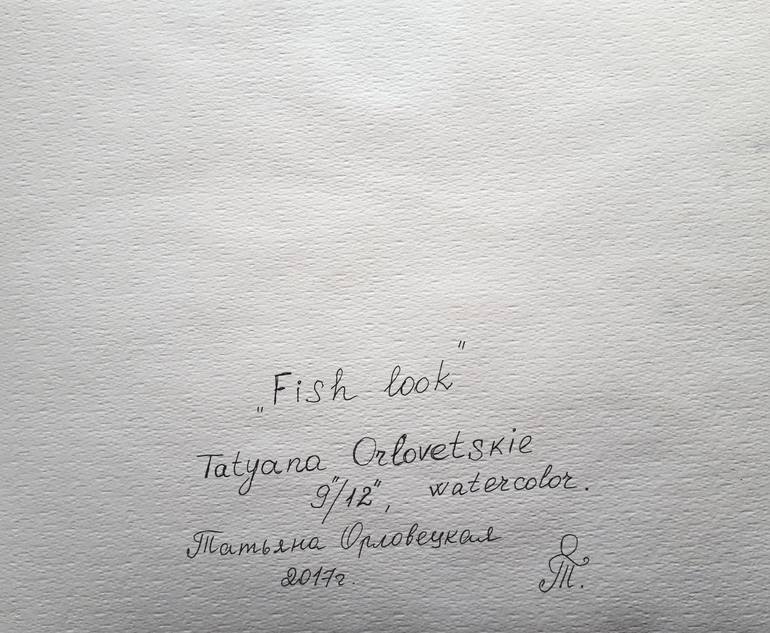 „Fish look"
Tatyana Orlovetskie
9"/12", watercolor.
Татьяна Орловецкая
2017г.
Т.